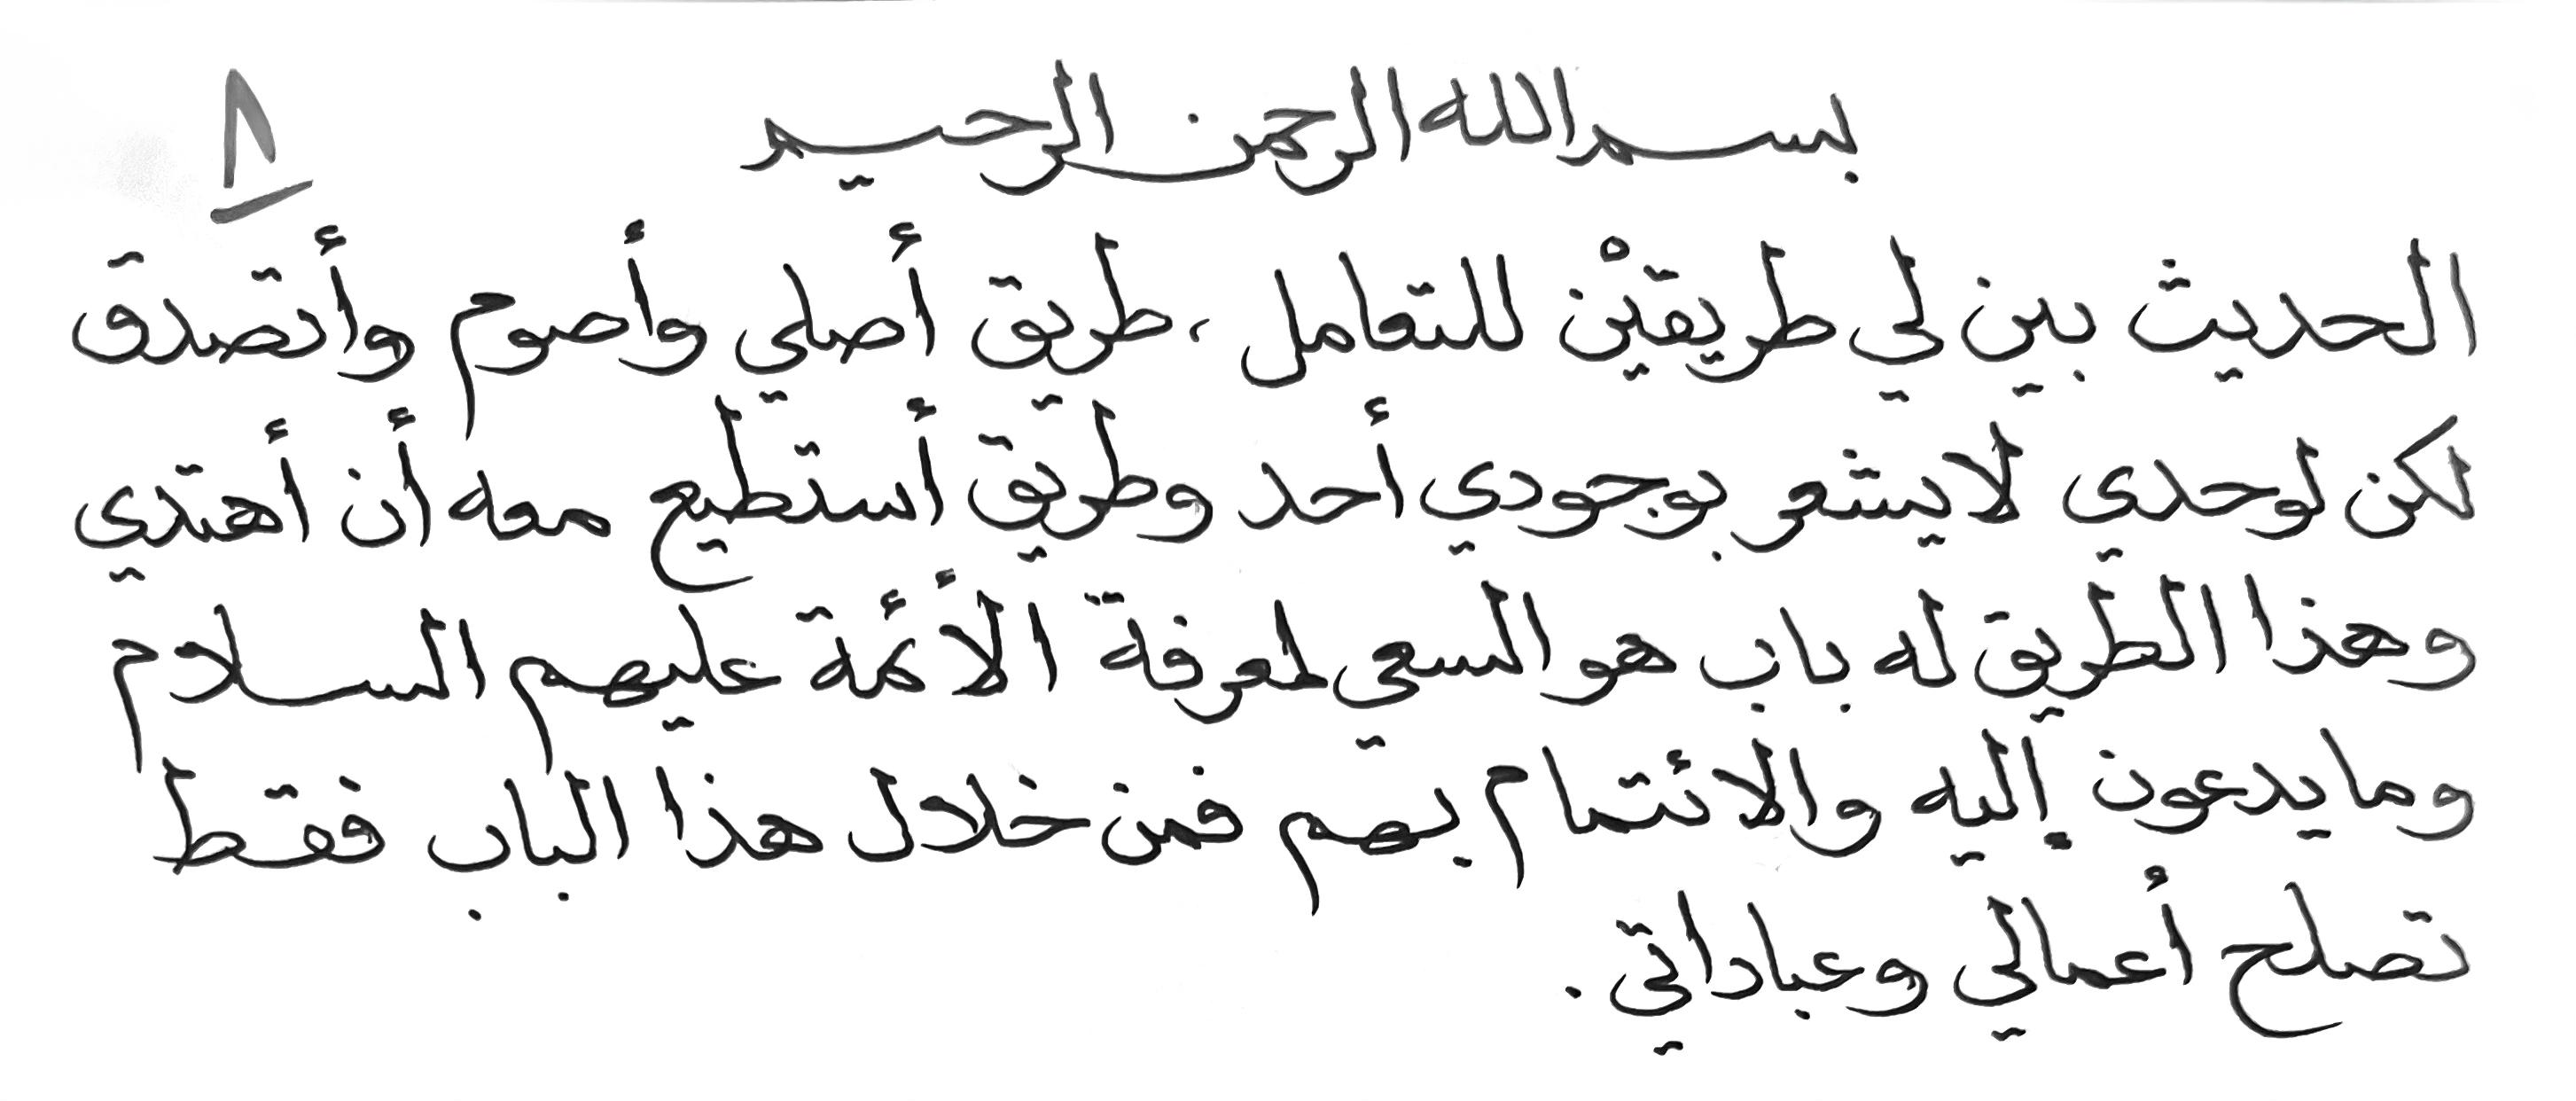 بسم الله الرحمن الرحيم
٨
الحديث بين لي طريقيْن للتعامل ، طريق أصلي وأصوم وأتصدق
لكن لوحدي لا يشعر بوجودي أحد وطريق أستطيع معه أن أهتدي
وهذا الطريق له باب هو السعي لمعرفة الأئمة عليهم السلام
وما يدعون إليه والائتمام بهم فمن خلال هذا الباب فقط
تصلح أعمالي وعباداتي .